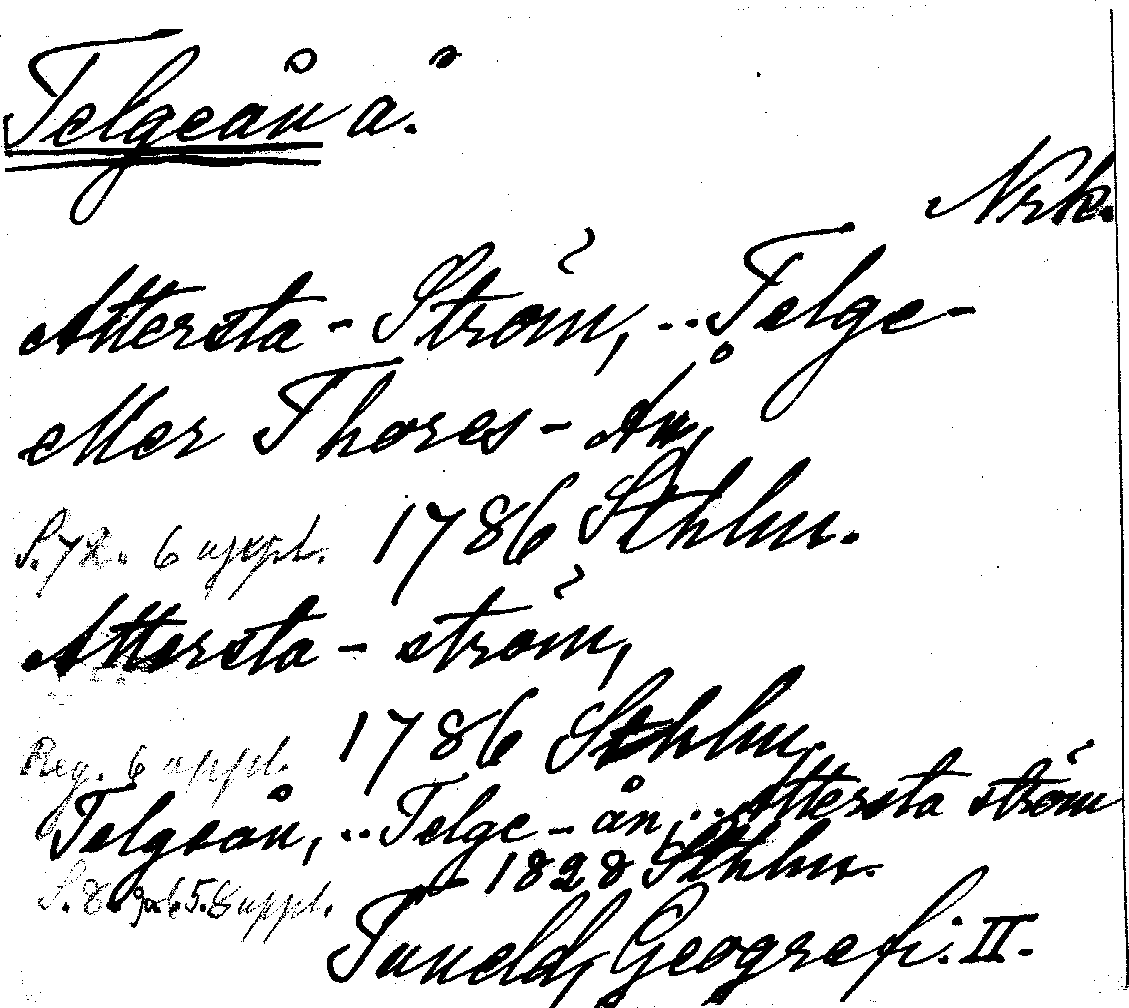 Telgeån å.
Nrk.
Attersta-Ström, .. Telge-
eller Thores-Ån,
S. 72. 6 uppl. 1786 Sthlm.
Attersta-ström,
Reg. 6 uppl. 1786 Sthlm.
Telgeån, .. Telge-ån, .. Attersta ström
1828 Sthlm.
S. 8 65. 8 uppl.
Tuneld, Geografi. II.